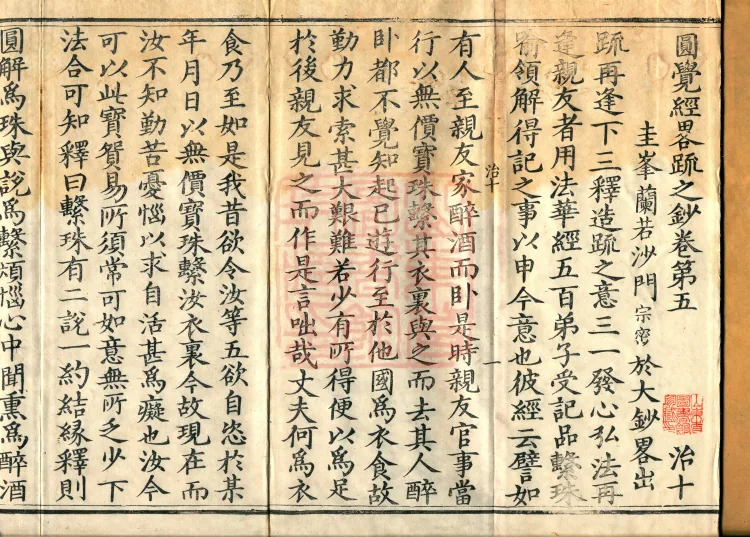 圓覺經畧䟽之鈔卷第五 治十
圭峯蘭若沙門宗密於大鈔畧出
䟽再逢下三釋造䟽之意三一發心弘法再
逢親友者用法華經五百弟子受記品繫珠
喻領解得記之事以申今意也彼經云譬如
有人至親友家醉酒而卧是時親友官事當
行以無價寶珠繫其衣裏與之而去其人醉
卧都不覺知起已遊行至於他國爲衣食故
勤力求索甚大艱難若少有所得便以爲足
於後親友見之而作是言咄哉丈夫何爲衣
食乃至如是我昔欲令汝等五欲自恣於某
年月日以無價寶珠繫汝衣裏今故現在而
汝不知勤苦憂惱以求自活甚爲癡也汝今
可以此寶貿易所須常可如意無所乏少下
法合可知釋曰繫珠有二說一約結緣釋則
圓解爲珠與說爲繫煩惱心中聞熏爲醉酒
治十
一